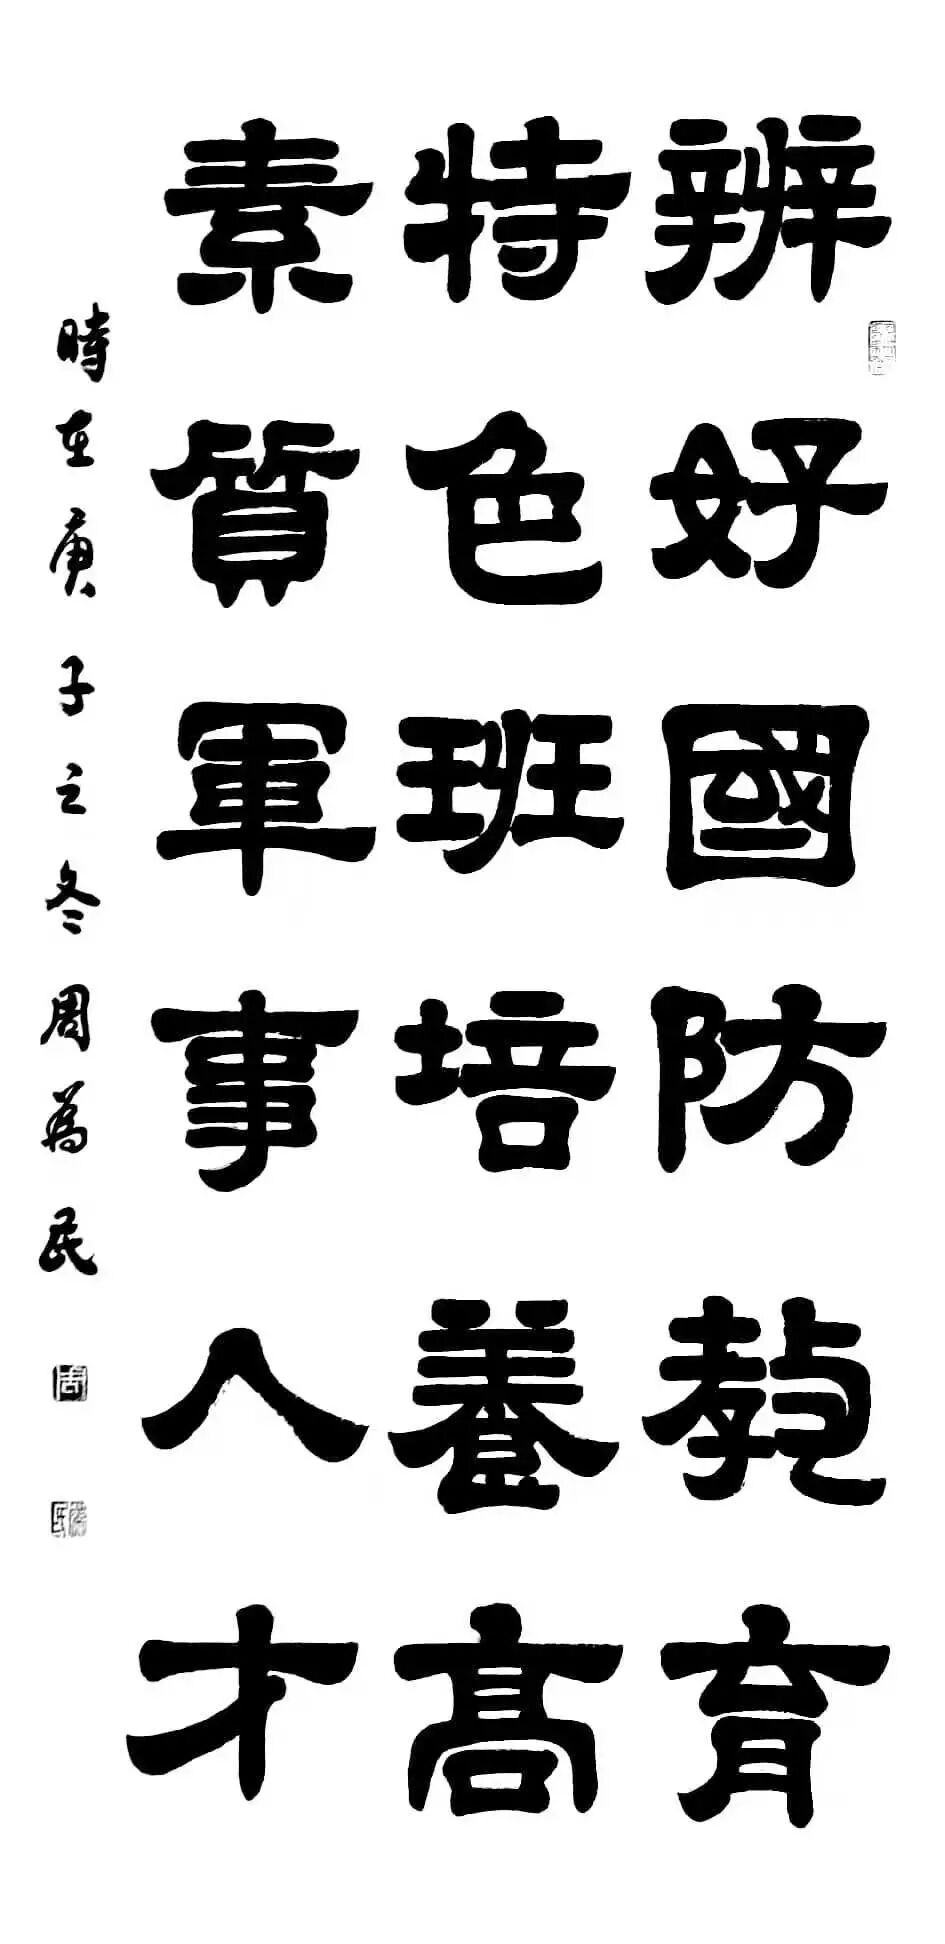 辨好國防教育
特色班培養高
素質軍事人才
時在庚子之冬周為民
周